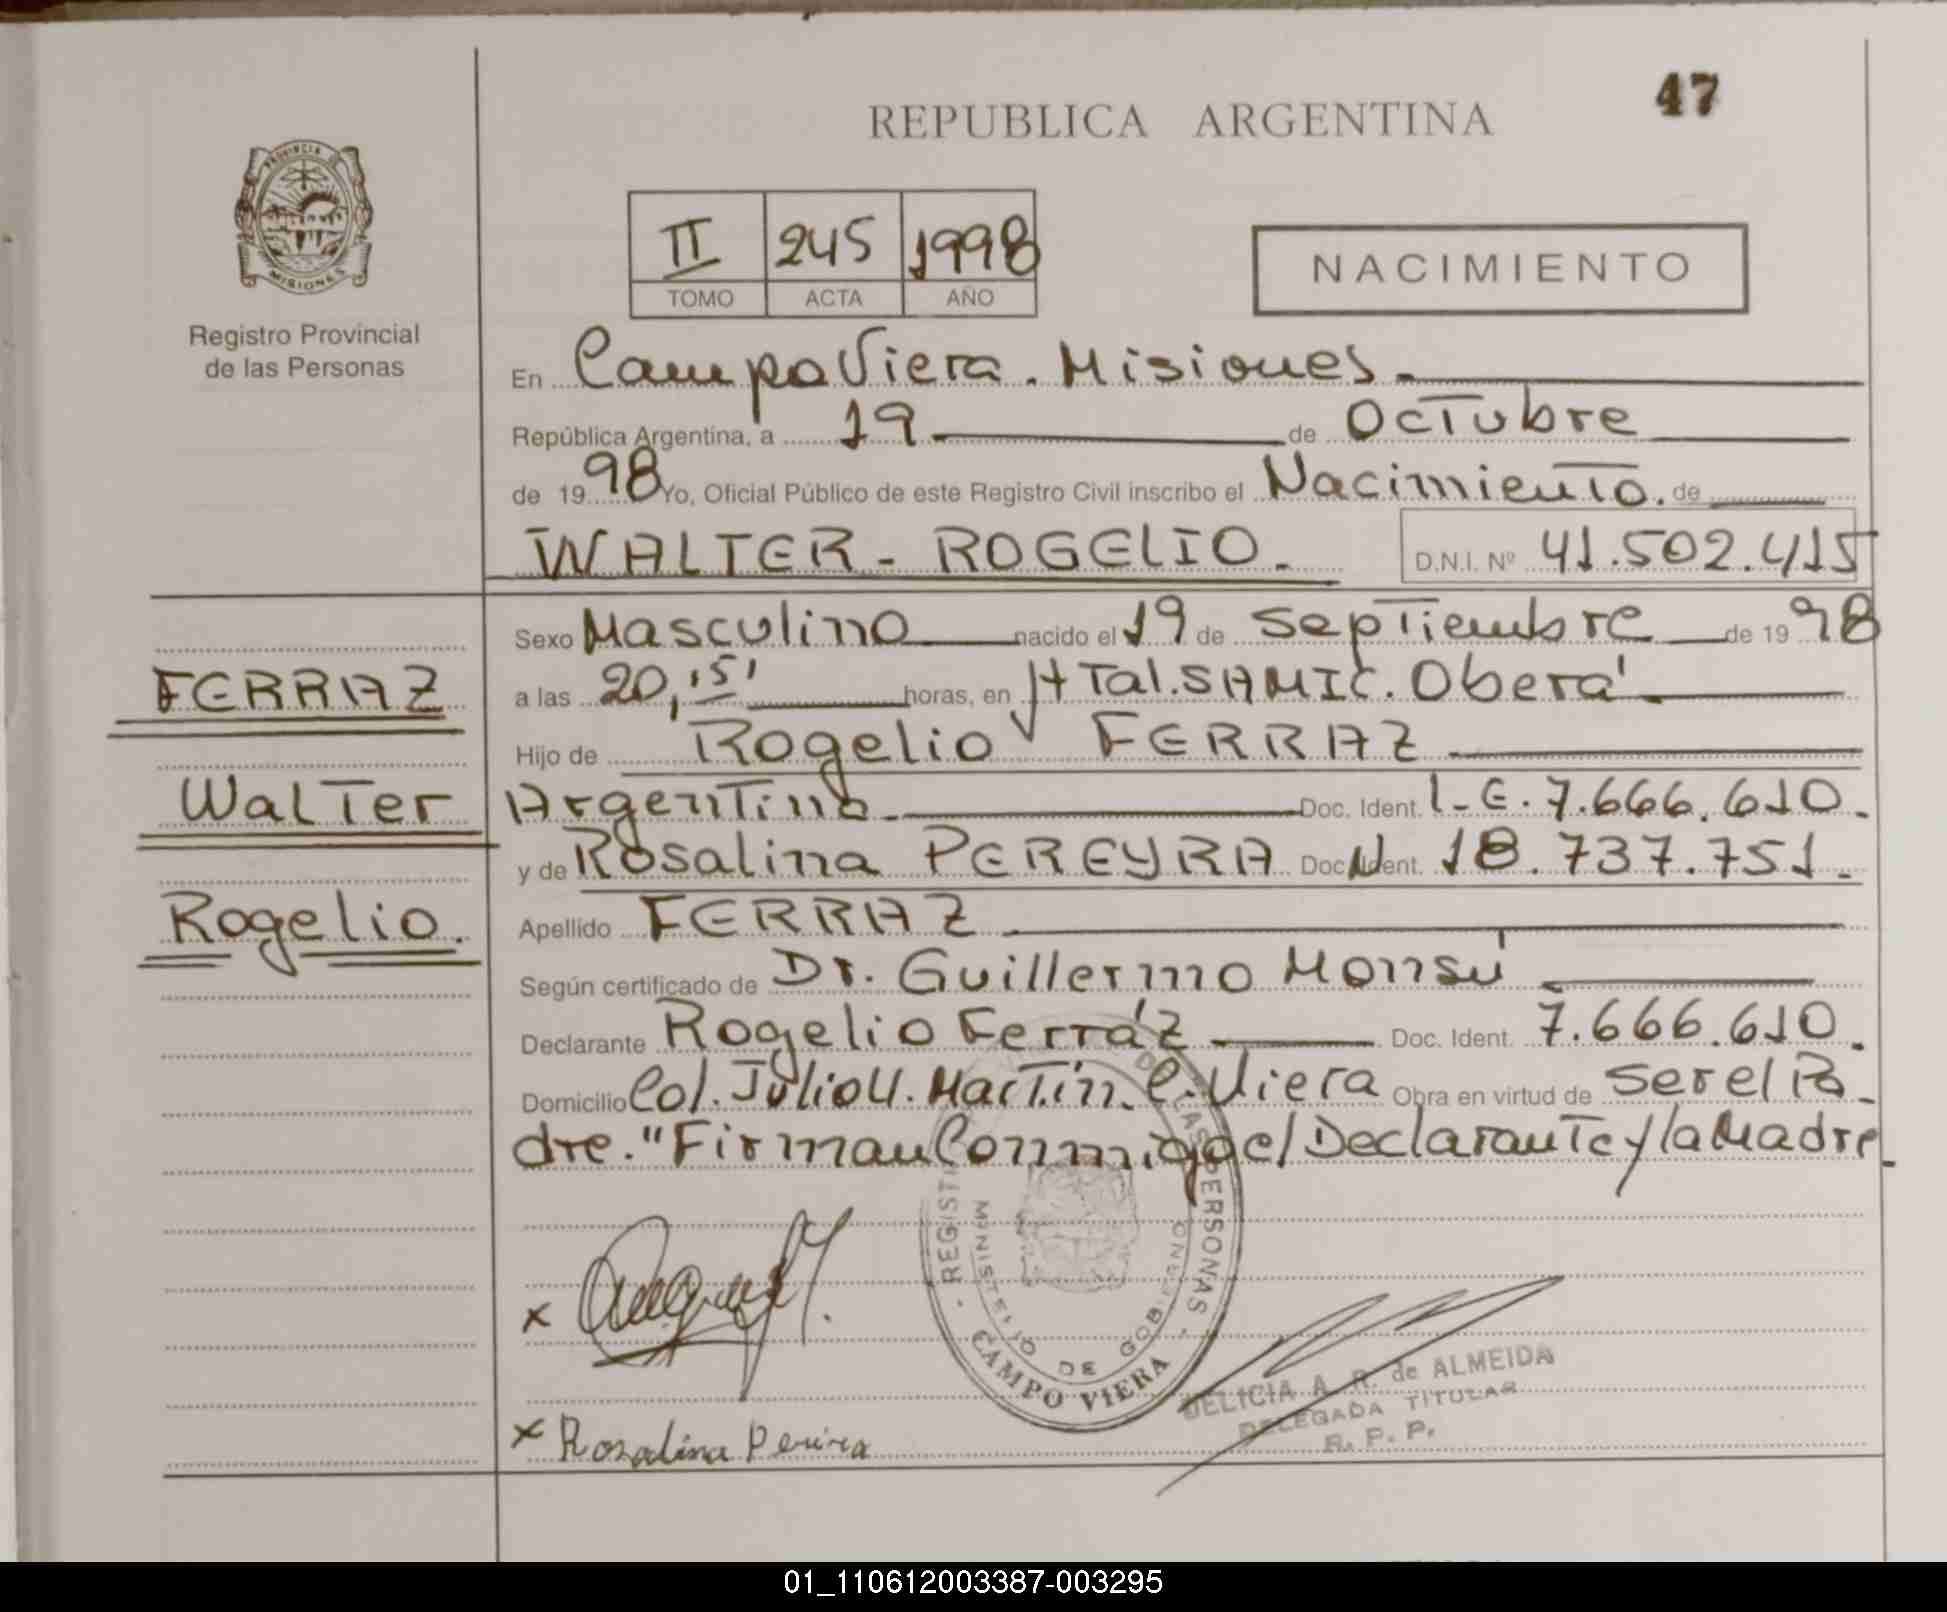 47
REPUBLICA ARGENTINA
PROVINCIA DE MISIONES
Registro Provincial
de las Personas
II 245 1998
TOMO ACTA AÑO
NACIMIENTO
En Campo Viera. Misiones.
República Argentina, a 19 de Octubre
de 1998 Yo, Oficial Público de este Registro Civil inscribo el Nacimiento. de
WALTER - ROGELIO. D.N.I. Nº 41.502.415
FERRAZ
Walter
Rogelio.
Sexo Masculino nacido el 19 de Septiembre de 1998
a las 20,15' horas, en HTal. SAMIC. Oberá
Hijo de Rogelio FERRAZ
Argentino. Doc. Ident. L-E. 7.666.610.
y de Rosalina PEREYRA Doc. Ident. N 18.737.751.
Apellido FERRAZ
Según certificado de Dr. Guillermo Monsú
Declarante Rogelio Ferráz Doc. Ident. 7.666.610.
Domicilio Col. Julio U. Martin. C. Viera Obra en virtud de ser el Pa-
dre. "Firman Conmigo el Declarante y la Madre-
REGISTRO DE LAS PERSONAS
MINISTERIO DE GOBIERNO
CAMPO VIERA
x
x Rosalina Pereira
DELICIA A. R. de ALMEIDA
DELEGADA TITULAR
R. P. P.
01_110612003387-003295